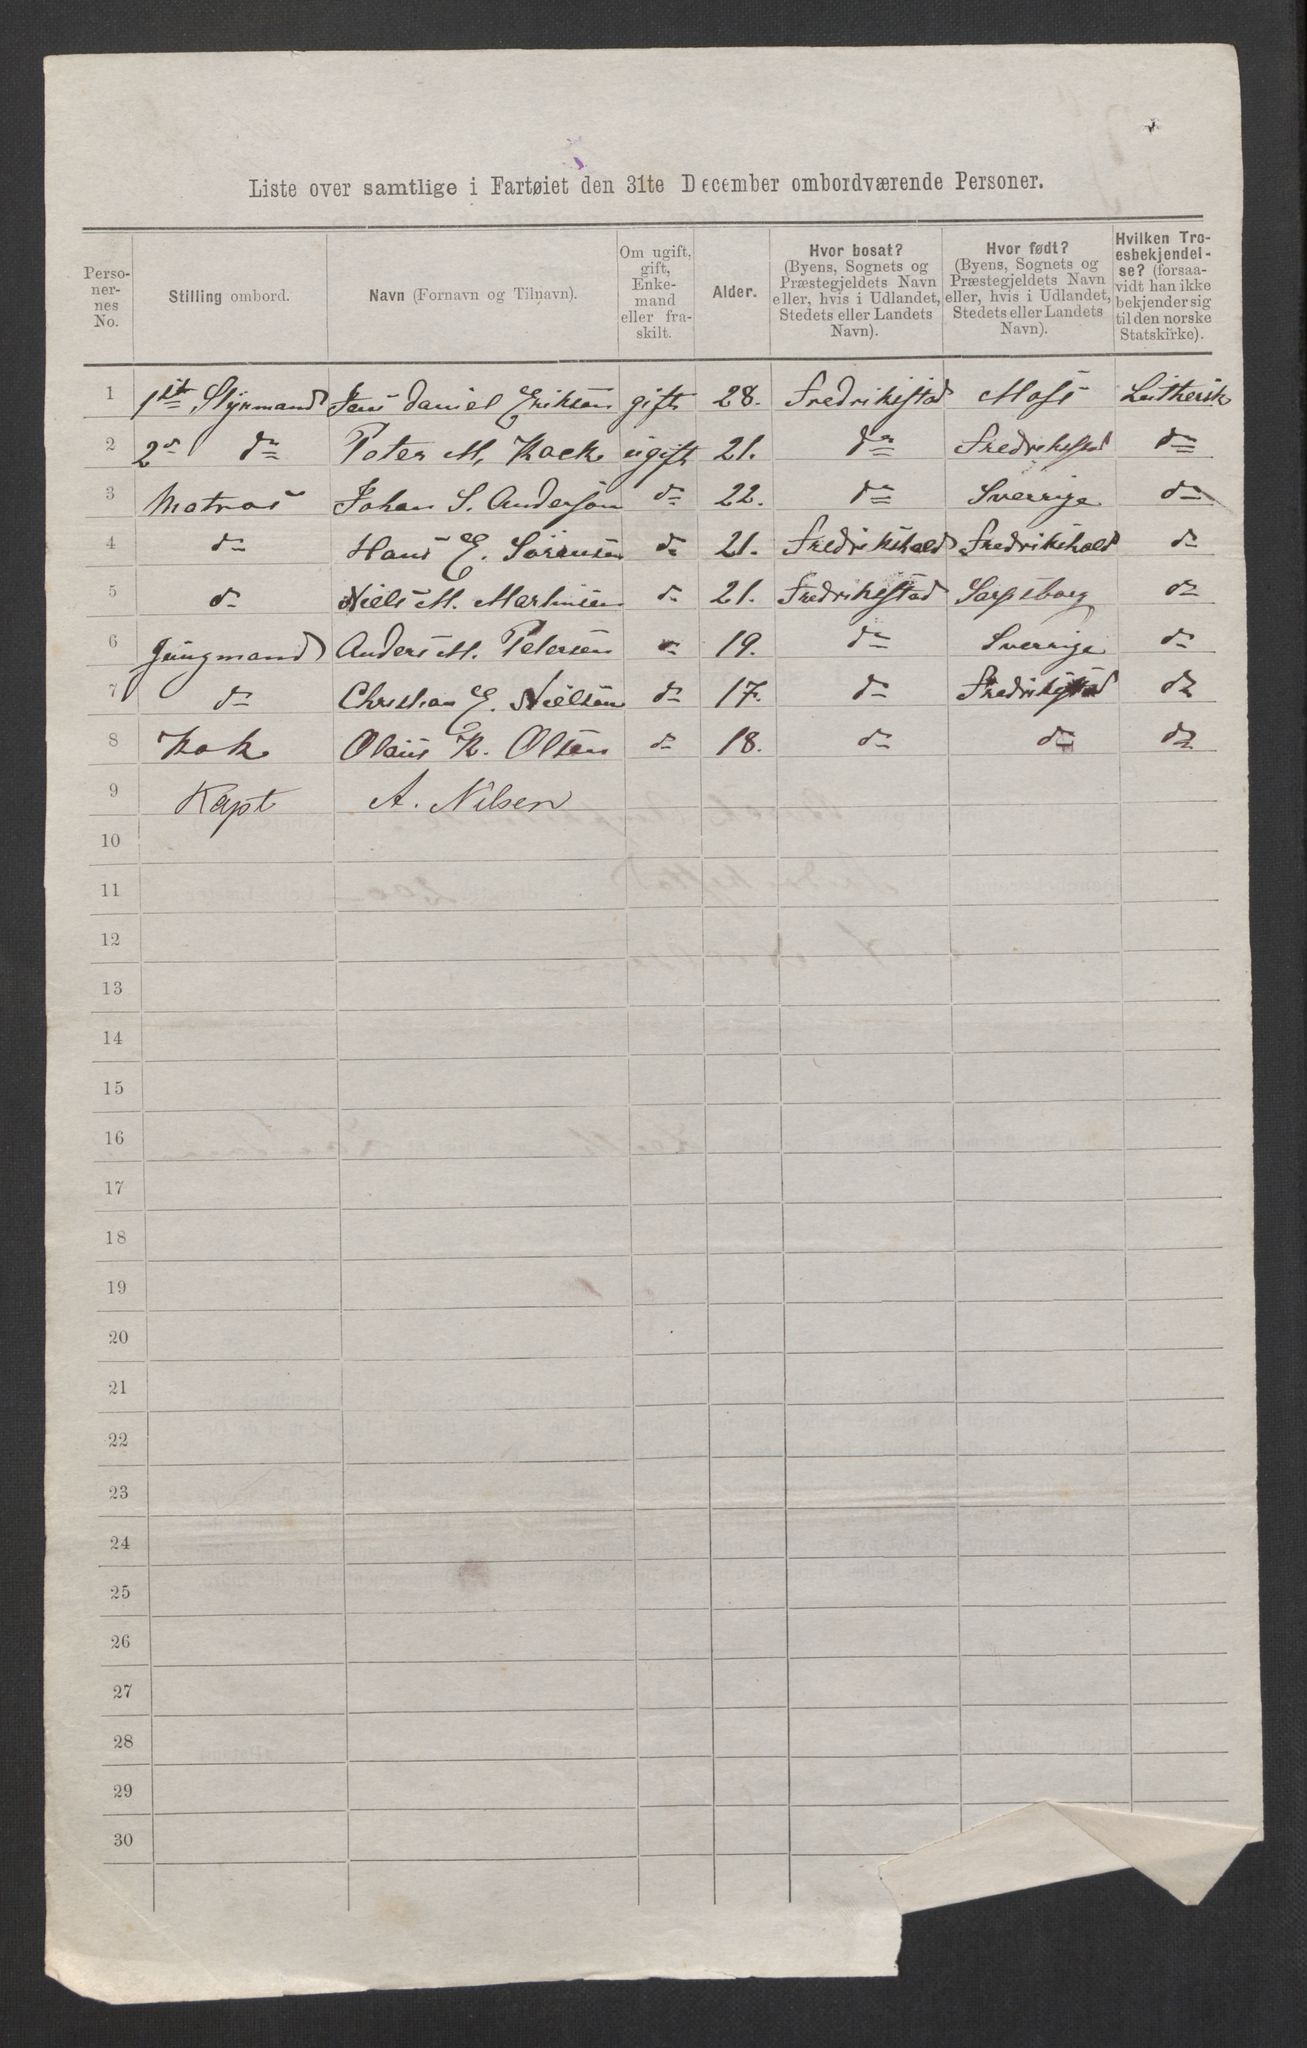 Liste over samtlige i Fartøiet den 31te December ombordværende Personer.
Perso-
ner-
nes
No.
Stilling ombord.
Navn (Fornavn og Tilnavn).
Om ugift,
gift,
Enke-
mand
eller fra-
skilt.
Alder.
Hvor bosat?
(Byens, Sognets og
Præstegjeldets Navn
eller, hvis i Udlandet,
Stedets eller Landets
Navn).
Hvor født?
(Byens, Sognets og
Præstegjeldets Navn
eller, hvis i Udlandet,
Stedets eller Landets
Navn).
Hvilken Tro-
esbekjendel-
se? (forsaa-
vidt han ikke
bekjender sig
til den norske
Statskirke).
1 1ste Styrmand Jens Daniel Erikson gift 28. Fredrikstad Moss Luthersk
2 2n do Peter M. Kock ugift 21. do Fredrikstad do
3 Matros Johan S. Anderson do 22. do Sverrige do
4 do Hans E. Sörensen do 21. Fredrikshald Fredrikshald do
5 do Niels M. Martinsen do 21. Fredrikstad Sarpsborg do
6 Jungmand Anders M. Petersen do 19. do Sverrige do
7 do Christian E. Nielsen do 17. do Fredrikstad do
8 Kok Olaus K. Olsen do 18. do do do
9 Kapt A. Nilsen
10
11
12
13
14
15
16
17
18
19
20
21
22
23
24
25
26
27
28
29
30